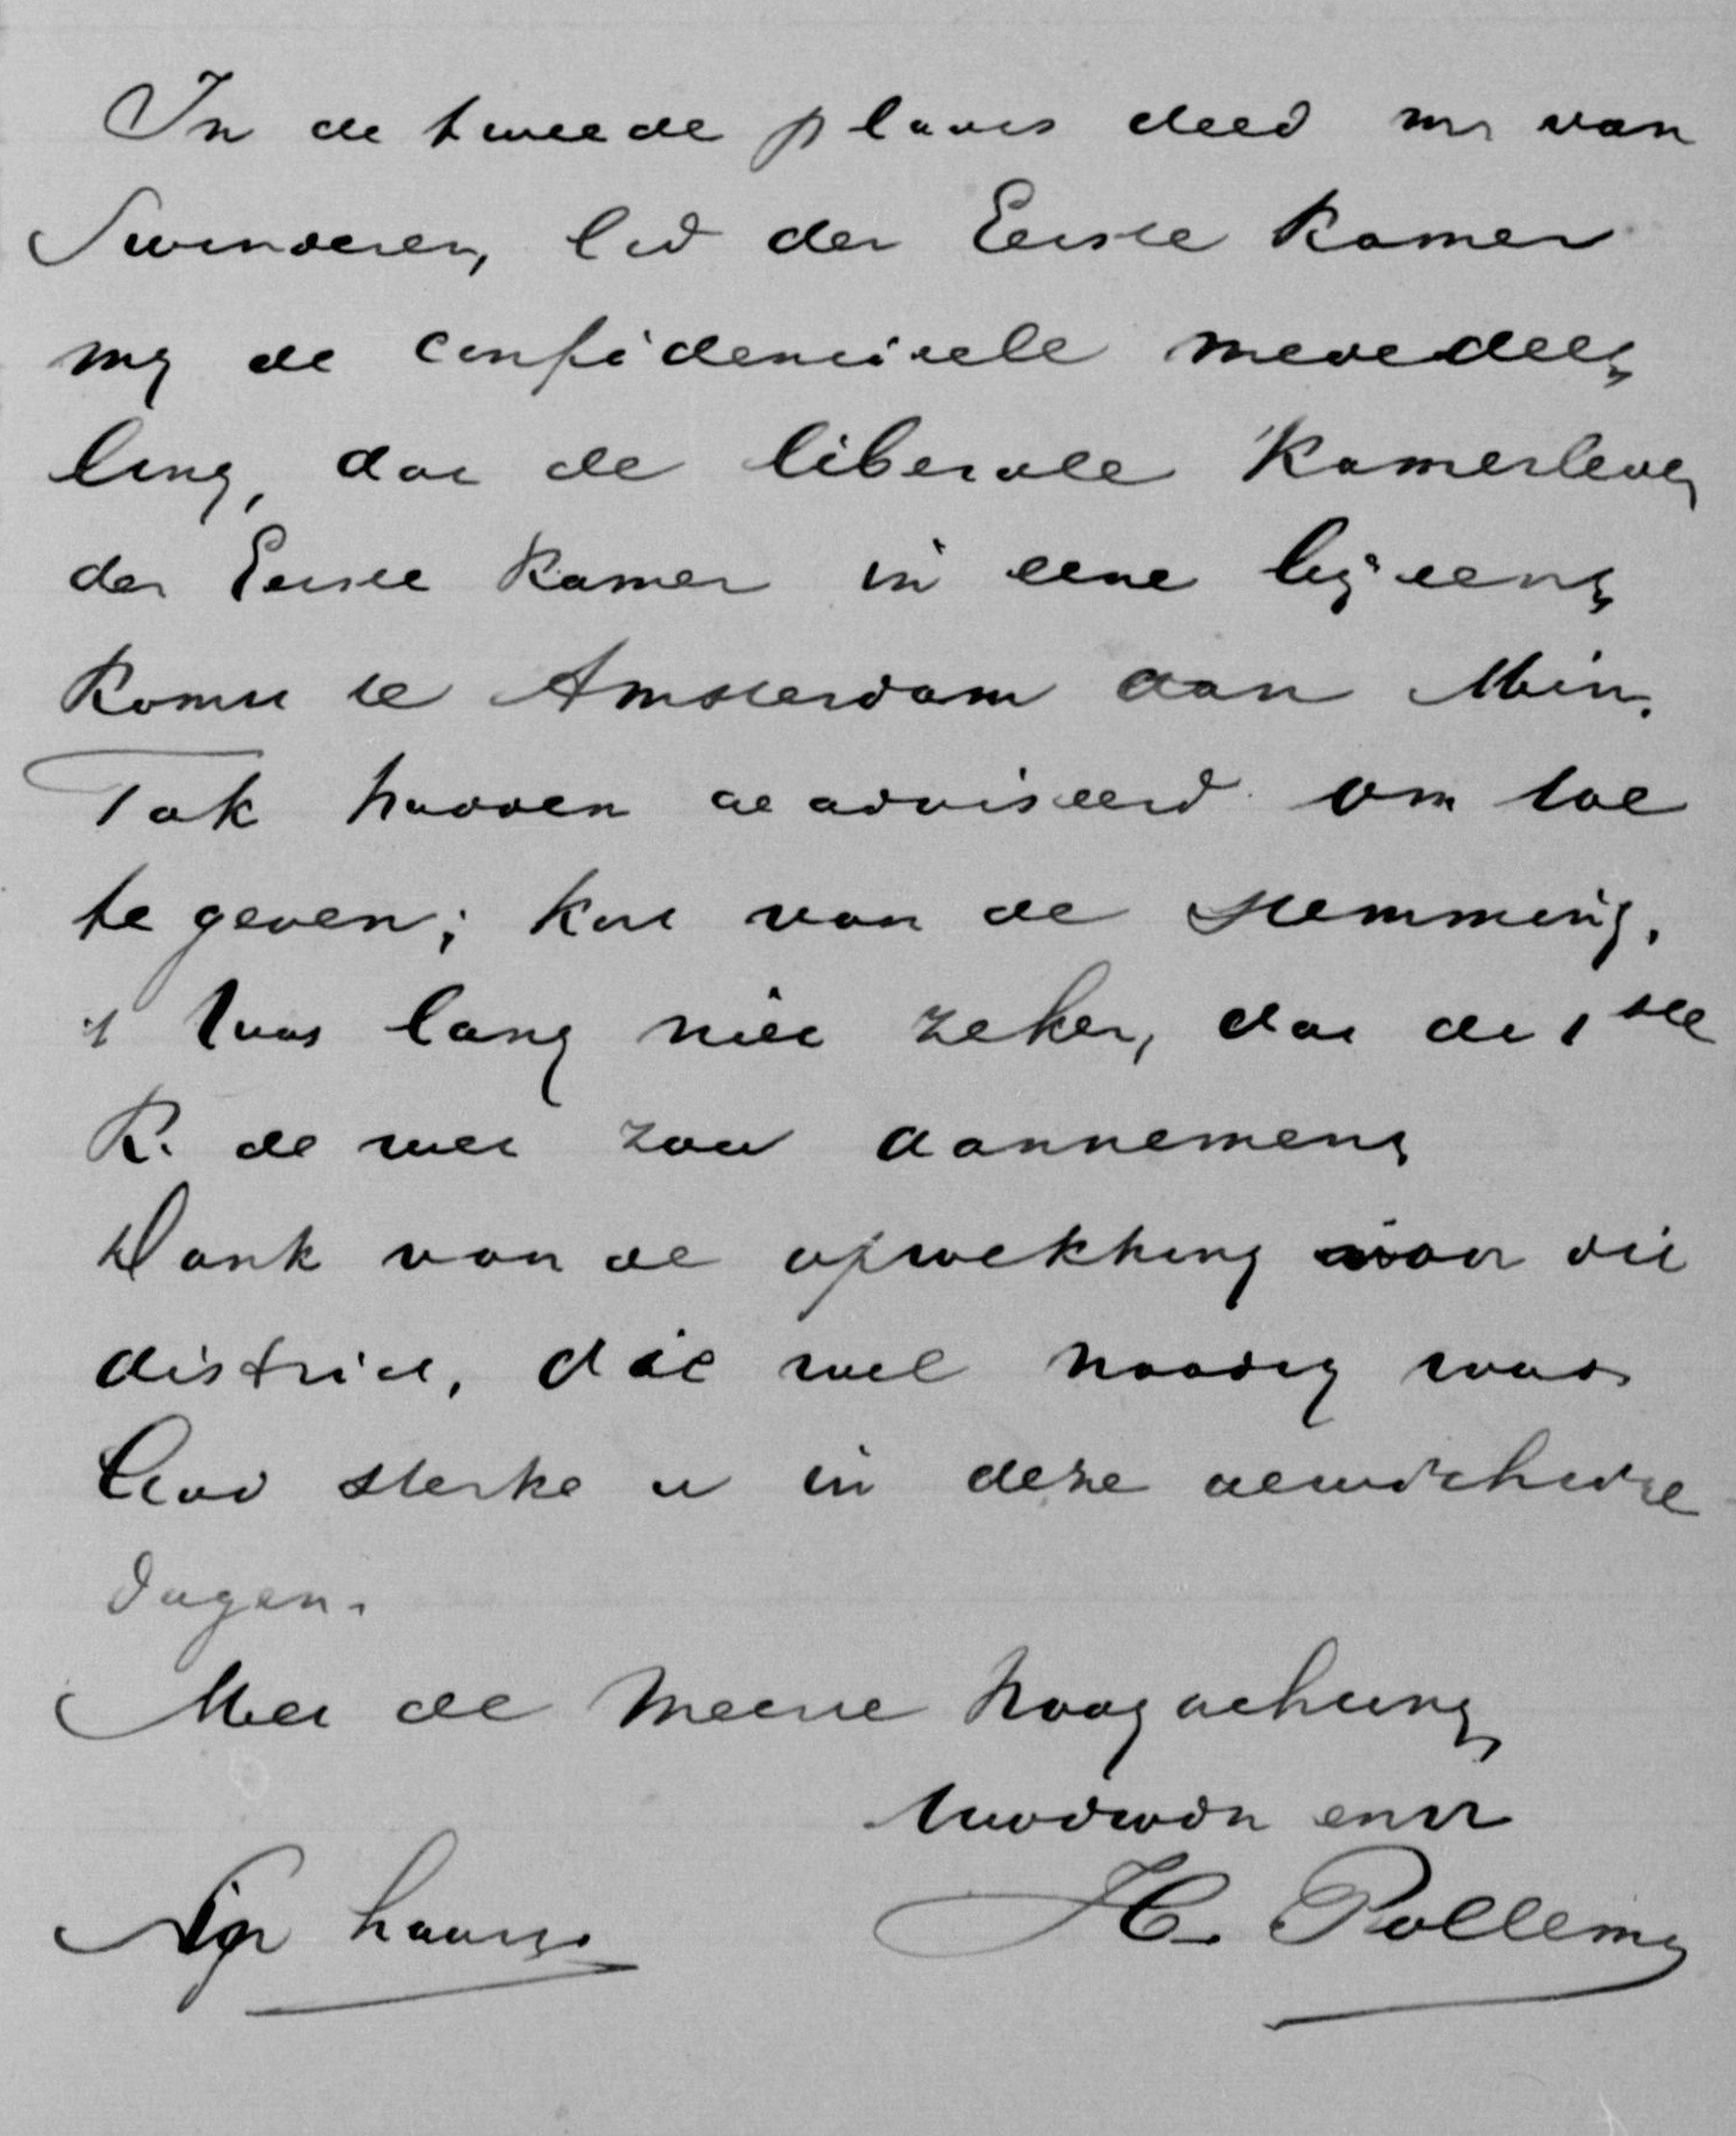 In de tweede plaats deed mr van
Swinderen, lid der Eerste Kamer
mij de confidentieele mededee-
ling, dat de liberale Kamerleden
der Eerste Kamer in eene bijeen-
komst te Amsterdam aan Min.
Tak hadden geadviseerd om toe
te geven; kort voor de stemming.
't Was lang niet zeker, dat de 1ste
K. de wet zou aannemen
Dank voor de opwekking voor dit
district, die wel noodig was
God sterke u in deze gewichtige
dagen.
Met de meeste hoogachting
Uwdwdn
Nijehaske H. Pollema